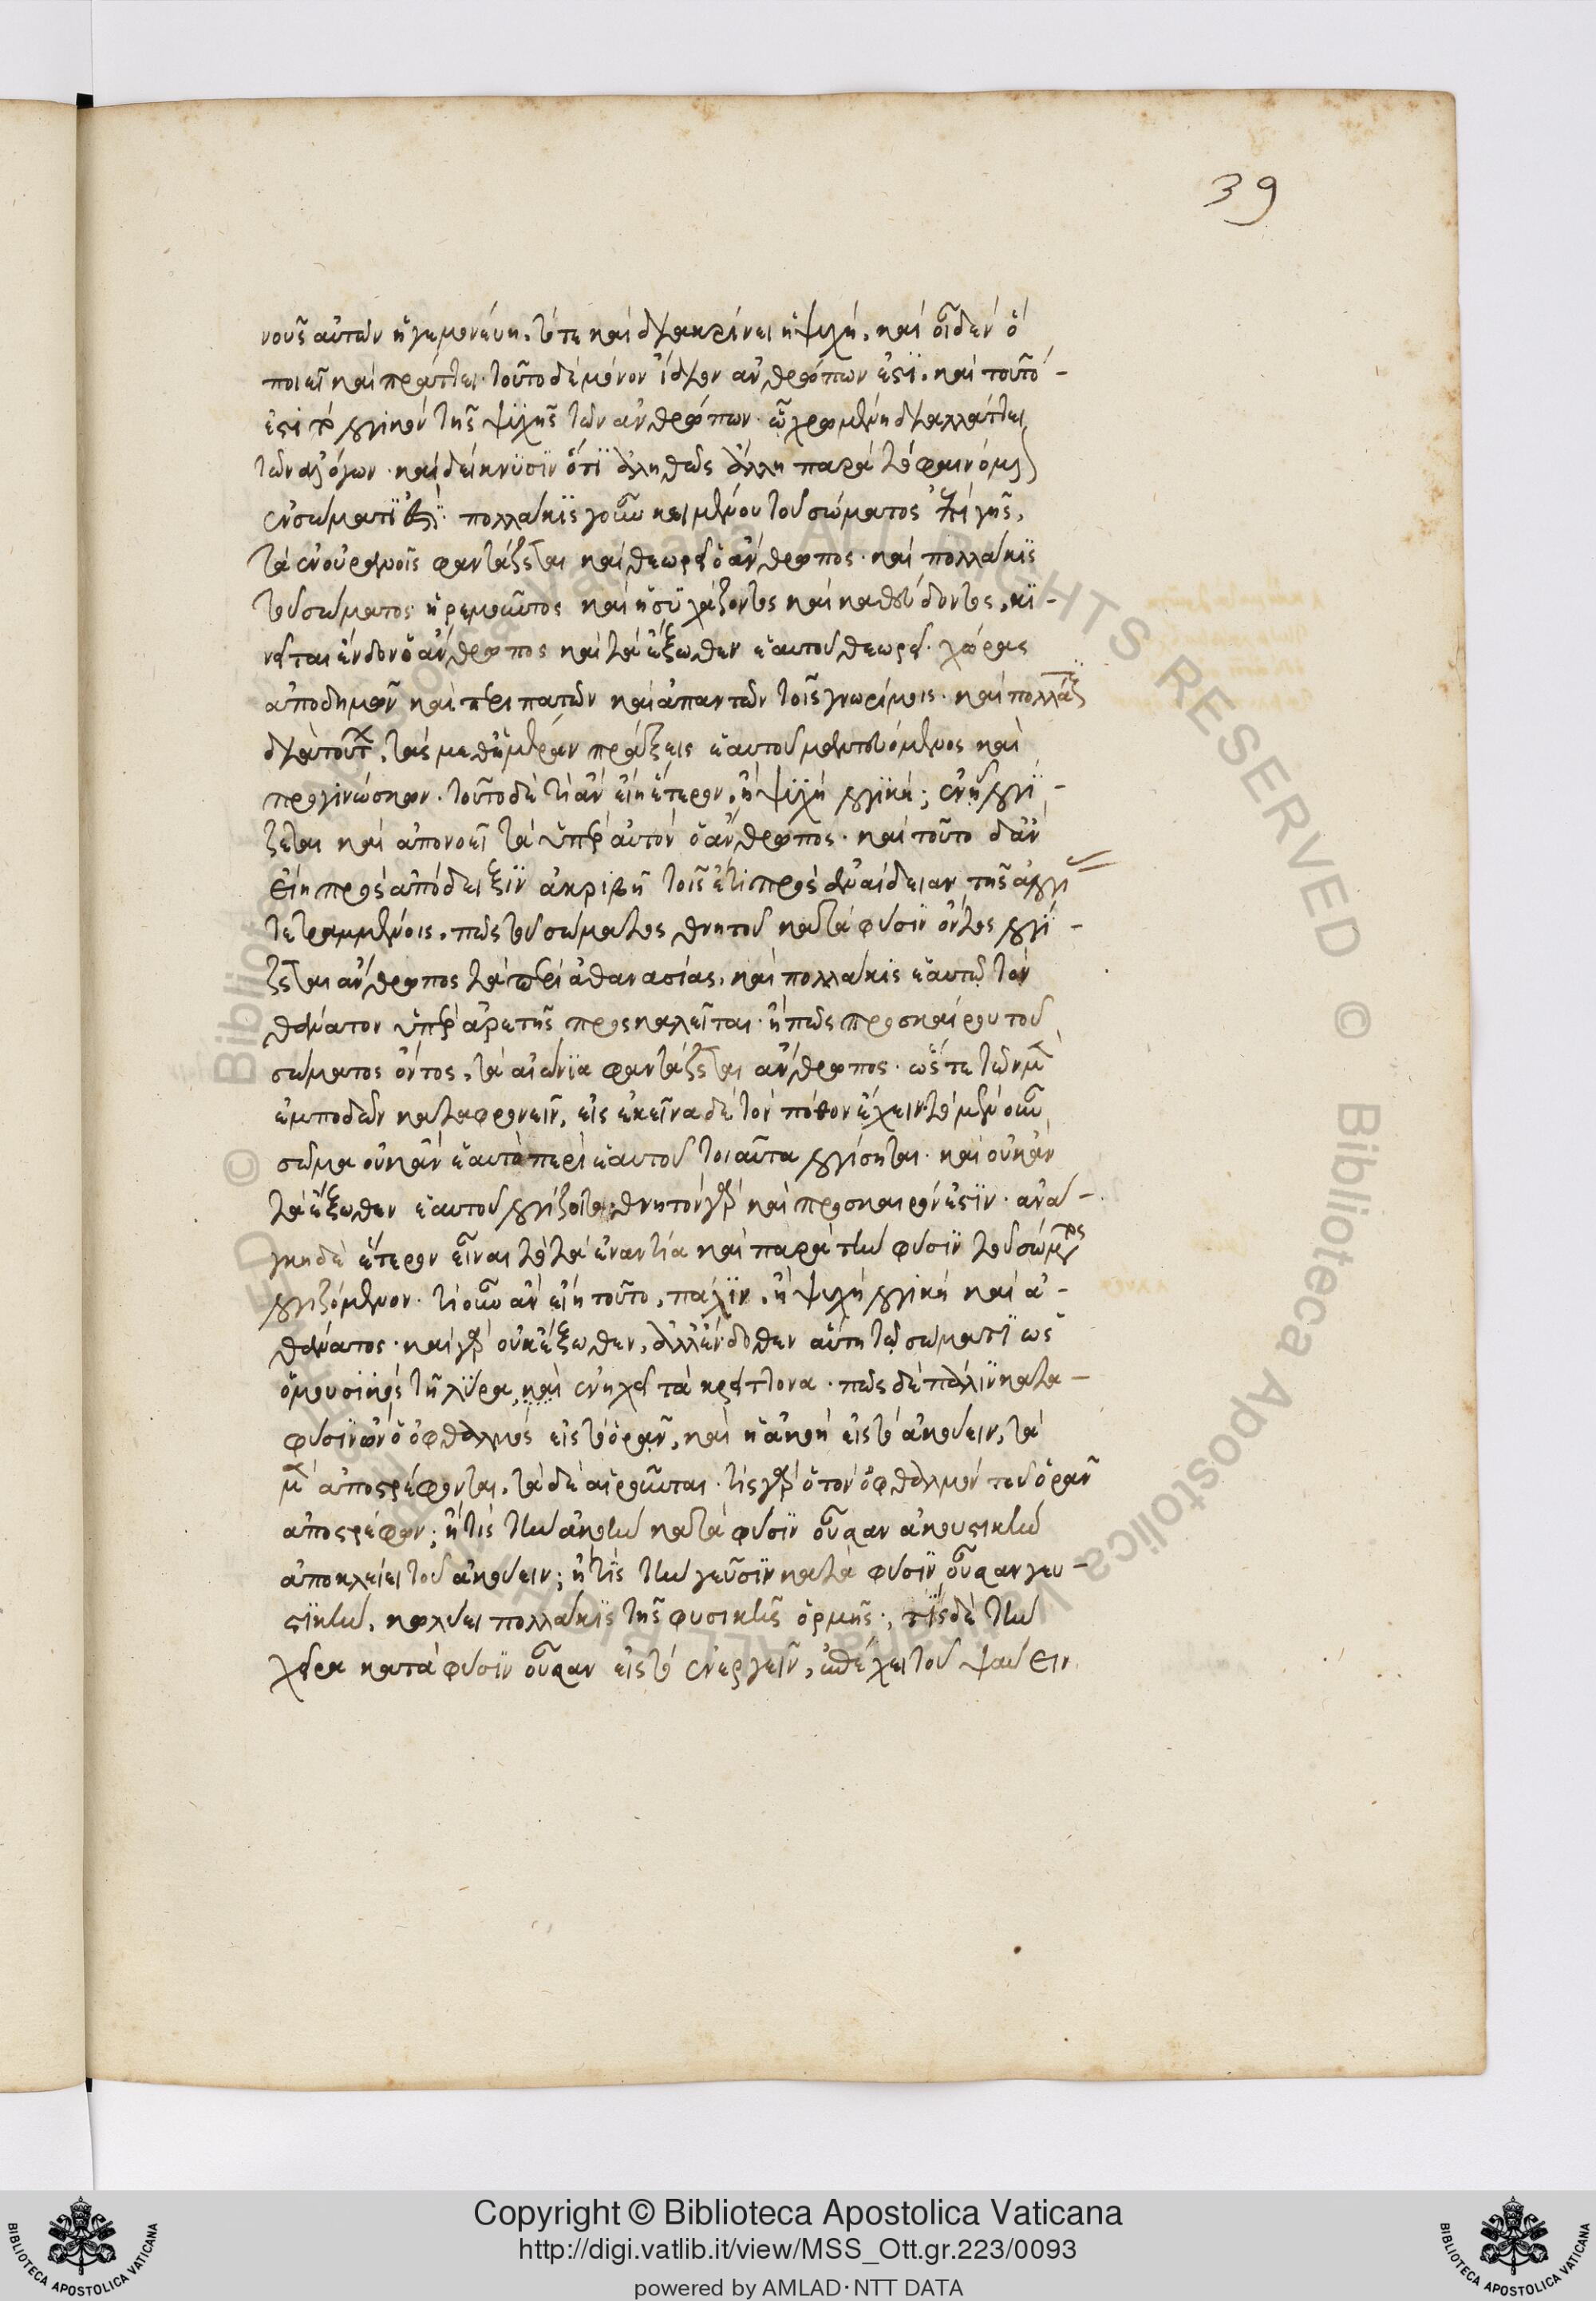 39
νοῦς αὐτῶν ἡγεμονεύη. τότε καὶ διακρίνει ἡ ψυχή. καὶ οἶδεν ὃ
ποιεῖ καὶ πράττει. τοῦτο δὲ μόνον ἴδιον ἀνθρώπων ἐστί. καὶ τοῦτό -
ἐστι τὸ λογικὸν τῆς ψυχῆς τῶν ἀνθρώπων. ᾧ χρωμένη διαλλάττει
τῶν ἀλόγων. καὶ δείκνυσιν ὅτι ἀληθῶς ἄλλη παρὰ τὸ φαινόμε
ἐν σώματί ἐστι. πολλάκις γοῦν κειμένου τοῦ σώματος ἐπὶ γῆς,
τὰ ἐν οὐρανοῖς φαντάζεται καὶ θεωρεῖ ὁ ἄνθρωπος. καὶ πολλάκις
τοῦ σώματος ἠρεμοῦντος καὶ ἡσυχάζοντος καὶ καθεύδοντος, κι -
νεῖται ἔνδον ὁ ἄνθρωπος καὶ τὰ ἔξωθεν ἑαυτοῦ θεωρεῖ. χώρας
ἀποδημῶν καὶ περιπατῶν καὶ ἀπαντῶν τοῖς γνωρίμοις. καὶ πολλάκις
διὰ τούτων, τὰς μεθημέραν πράξεις ἑαυτοῦ μαντευόμενος καὶ
προγινώσκων. τοῦτο δὲ τί ἂν εἴη ἕτερον, ἢ ψυχὴ λογική; ἐν ᾗ λογί -
ζεται καὶ ἀπονοεῖ τὰ ὑπὲρ αὐτὸν ὁ ἄνθρωπος. καὶ τοῦτο δ' ἂν
εἴη πρὸς ἀπόδειξιν ἀκριβῆ τοῖς ἔτι πρὸς ἀναίδειαν τῆς ἀλογί
τετραμμένοις. πῶς τοῦ σώματος θνητοῦ κατὰ φύσιν ὄντος λογί -
ζεται ἄνθρωπος τὰ περὶ ἀθανασίας. καὶ πολλάκις ἑαυτῷ τὸν
θάνατον ὑπὲρ ἀρετῆς προσκαλεῖται. ἢ πῶς προσκαίρου τοῦ
σώματος ὄντος, τὰ αἰώνια φαντάζεται ἄνθρωπος. ὥστε τῶν μὲν
ἐμποδῶν καταφρονεῖν, εἰς ἐκεῖνα δὲ τὸν πόθον ἔχειν. τὸ μὲν οὖν
σῶμα οὐκ ἂν ἑαυτὸ περὶ ἑαυτοῦ τοιαῦτα λογίσηται. καὶ οὐκ ἂν
τὰ ἔξωθεν ἑαυτοῦ λογίζοιτο. θνητὸν γὰρ καὶ πρόσκαιρόν ἐστιν. ἀνά -
γκη δὲ ἕτερον εἶναι τὸ τὰ ἐναντία καὶ παρὰ τὴν φύσιν τοῦ σώματος
λογιζόμενον. τί οὖν ἂν εἴη τοῦτο, πάλιν, ἢ ψυχὴ λογικὴ καὶ ἀ -
θάνατος. καὶ γὰρ οὐκ ἔξωθεν, ἀλλ' ἔνδοθεν αὕτη τῷ σώματι ὡς
ὁ μουσικὸς τῇ λύρᾳ, καὶ ἐνηχεῖ τὰ κρείττονα. πῶς δὲ πάλιν κατα -
φύσιν ὢν ὁ ὀφθαλμὸς εἰς τὸ ὁρᾶν, καὶ ἡ ἀκοὴ εἰς τὸ ἀκούειν, τὰ
μὲν ἀποστρέφονται, τὰ δὲ αἱροῦνται. τίς γὰρ ὁ τὸν ὀφθαλμὸν τοῦ ὁρᾶν
ἀποστρέφων; ἢ τίς τὴν ἀκοὴν κατὰ φύσιν οὖσαν ἀκουστικὴν
ἀποκλείει τοῦ ἀκούειν; ἢ τίς τὴν γεῦσιν κατὰ φύσιν οὖσαν γευ -
στικὴν, κωλύει πολλάκις τῆς φυσικῆς ὁρμῆς; τίς δὲ τὴν
χεῖρα κατὰ φύσιν οὖσαν εἰς τὸ ἐνεργεῖν, ἐπέχει τοῦ ψαύειν
Copyright © Biblioteca Apostolica Vaticana
http://digi.vatlib.it/view/MSS_Ott.gr.223/0093
powered by AMLAD·NTT DATA